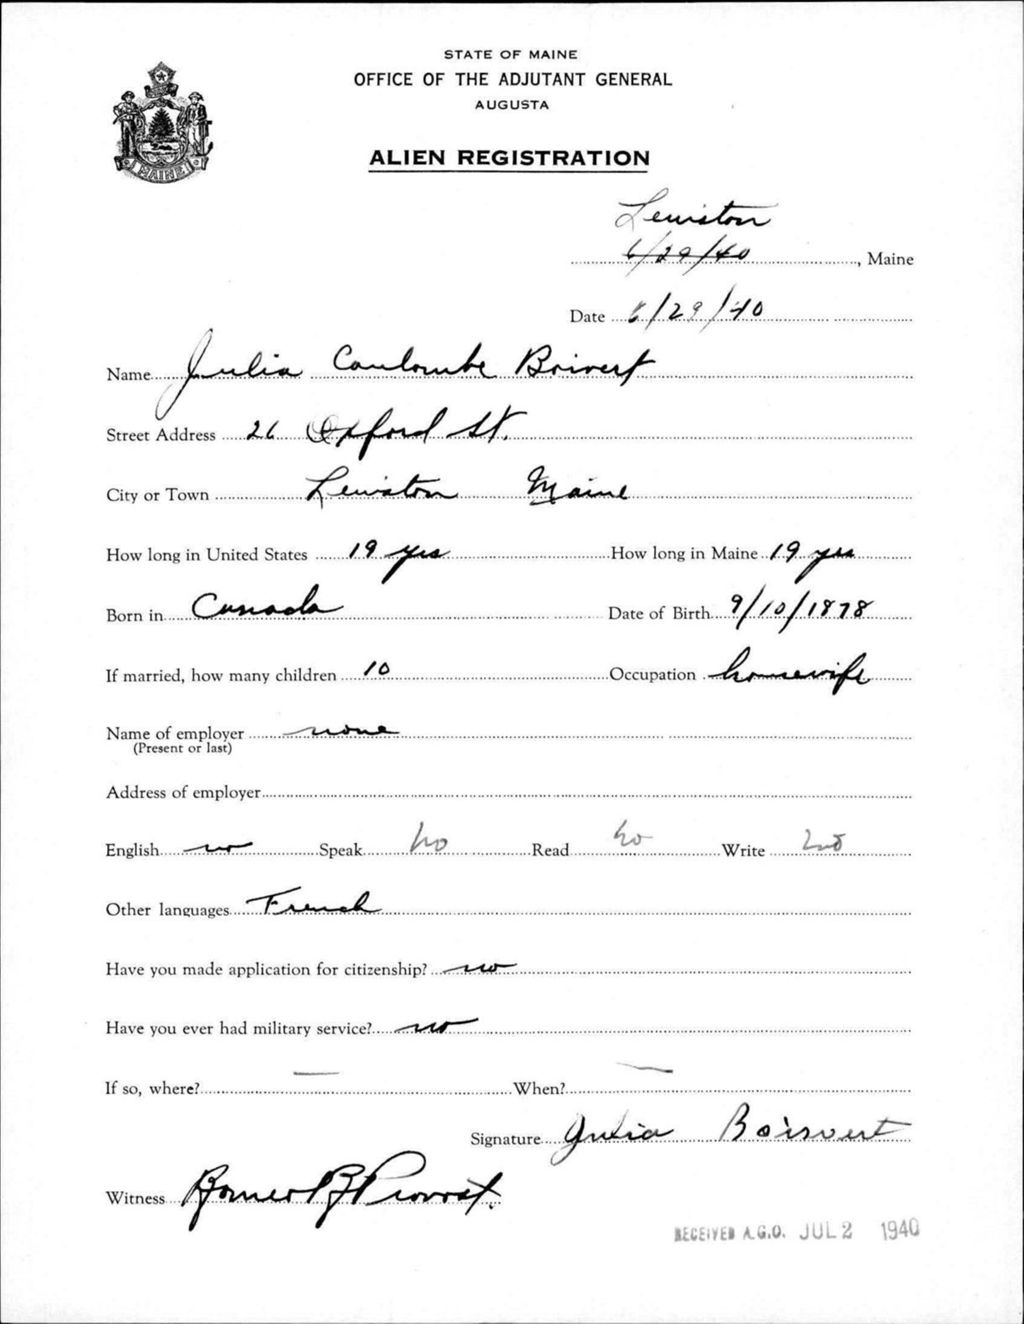 STATE OF MAINE
OFFICE OF THE ADJUTANT GENERAL
AUGUSTA
MAINE
ALIEN REGISTRATION
Lewiston
6/29/40, Maine
Date 6/29/40
Name Julia Coulombe Boivert
Street Address 26 Oxford St.
City or Town Lewiston Maine
How long in United States 19 yrs How long in Maine 19 yrs
Born in Canada Date of Birth 9/10/1878
If married, how many children 10 Occupation housewife
Name of employer none
(Present or last)
Address of employer
English no Speak no Read no Write no
Other languages French
Have you made application for citizenship? no
Have you ever had military service? no
If so, where? — When? —
Signature Julia Boisvert
Witness Provost
RECEIVED A.G.O. JUL 2 1940